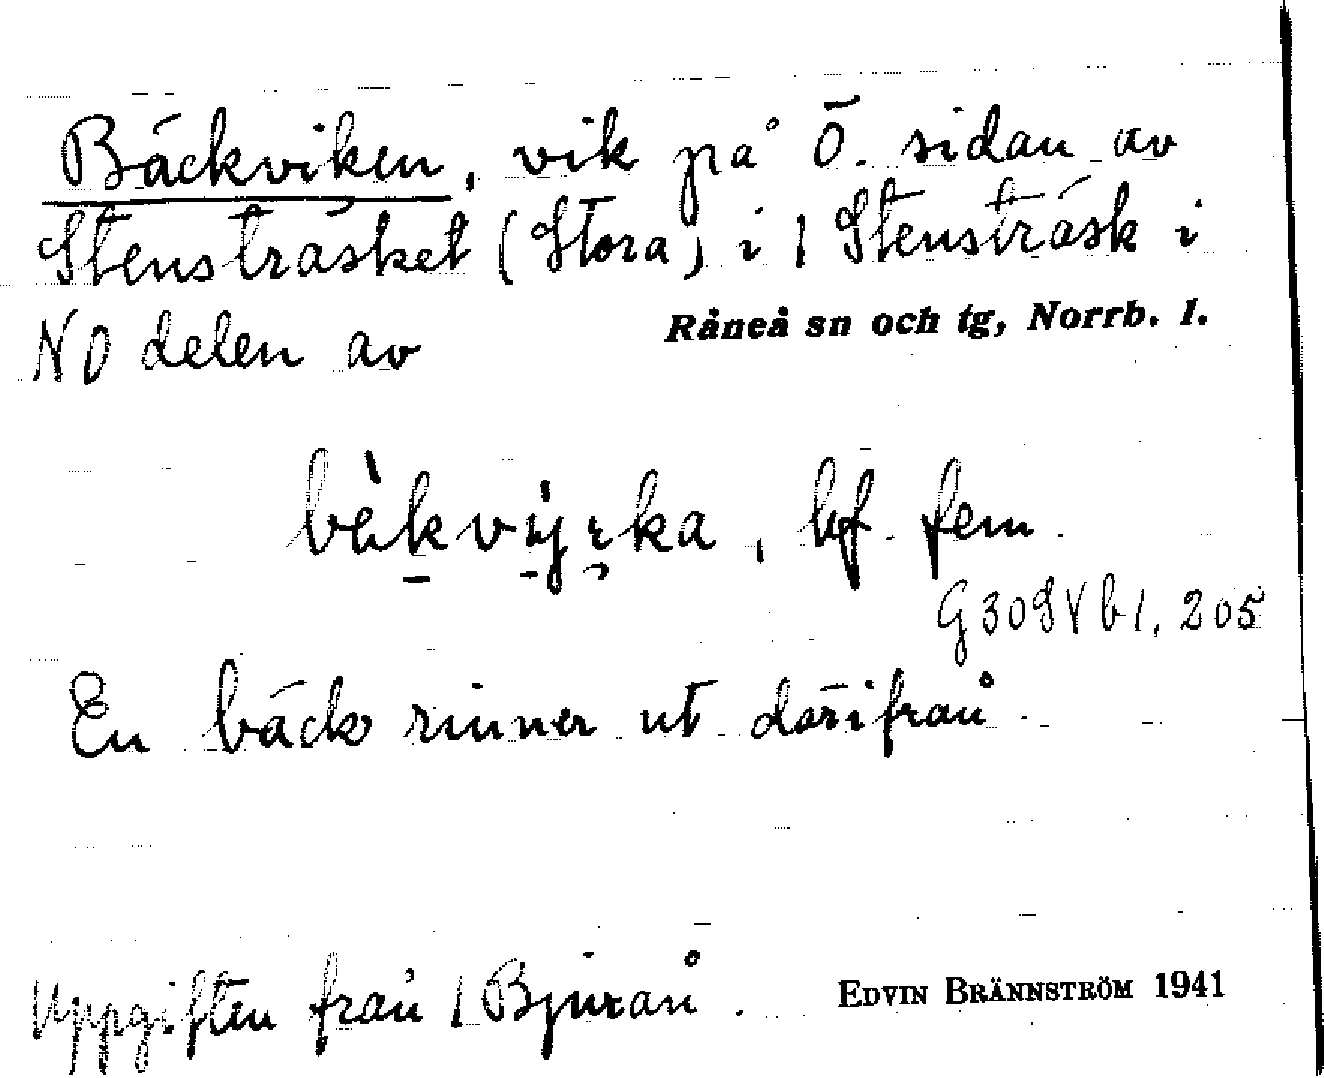 Bäckviken, vik på Ö. sidan av
Stensträsket (Stora) i / Stensträsk i
NO delen av Råneå sn och tg, Norrb. l.
bf. fem.
En bäck rinner ut därifrån.
Uppgiften från / Bjurån. EDVIN BRÄNNSTRÖM 1941